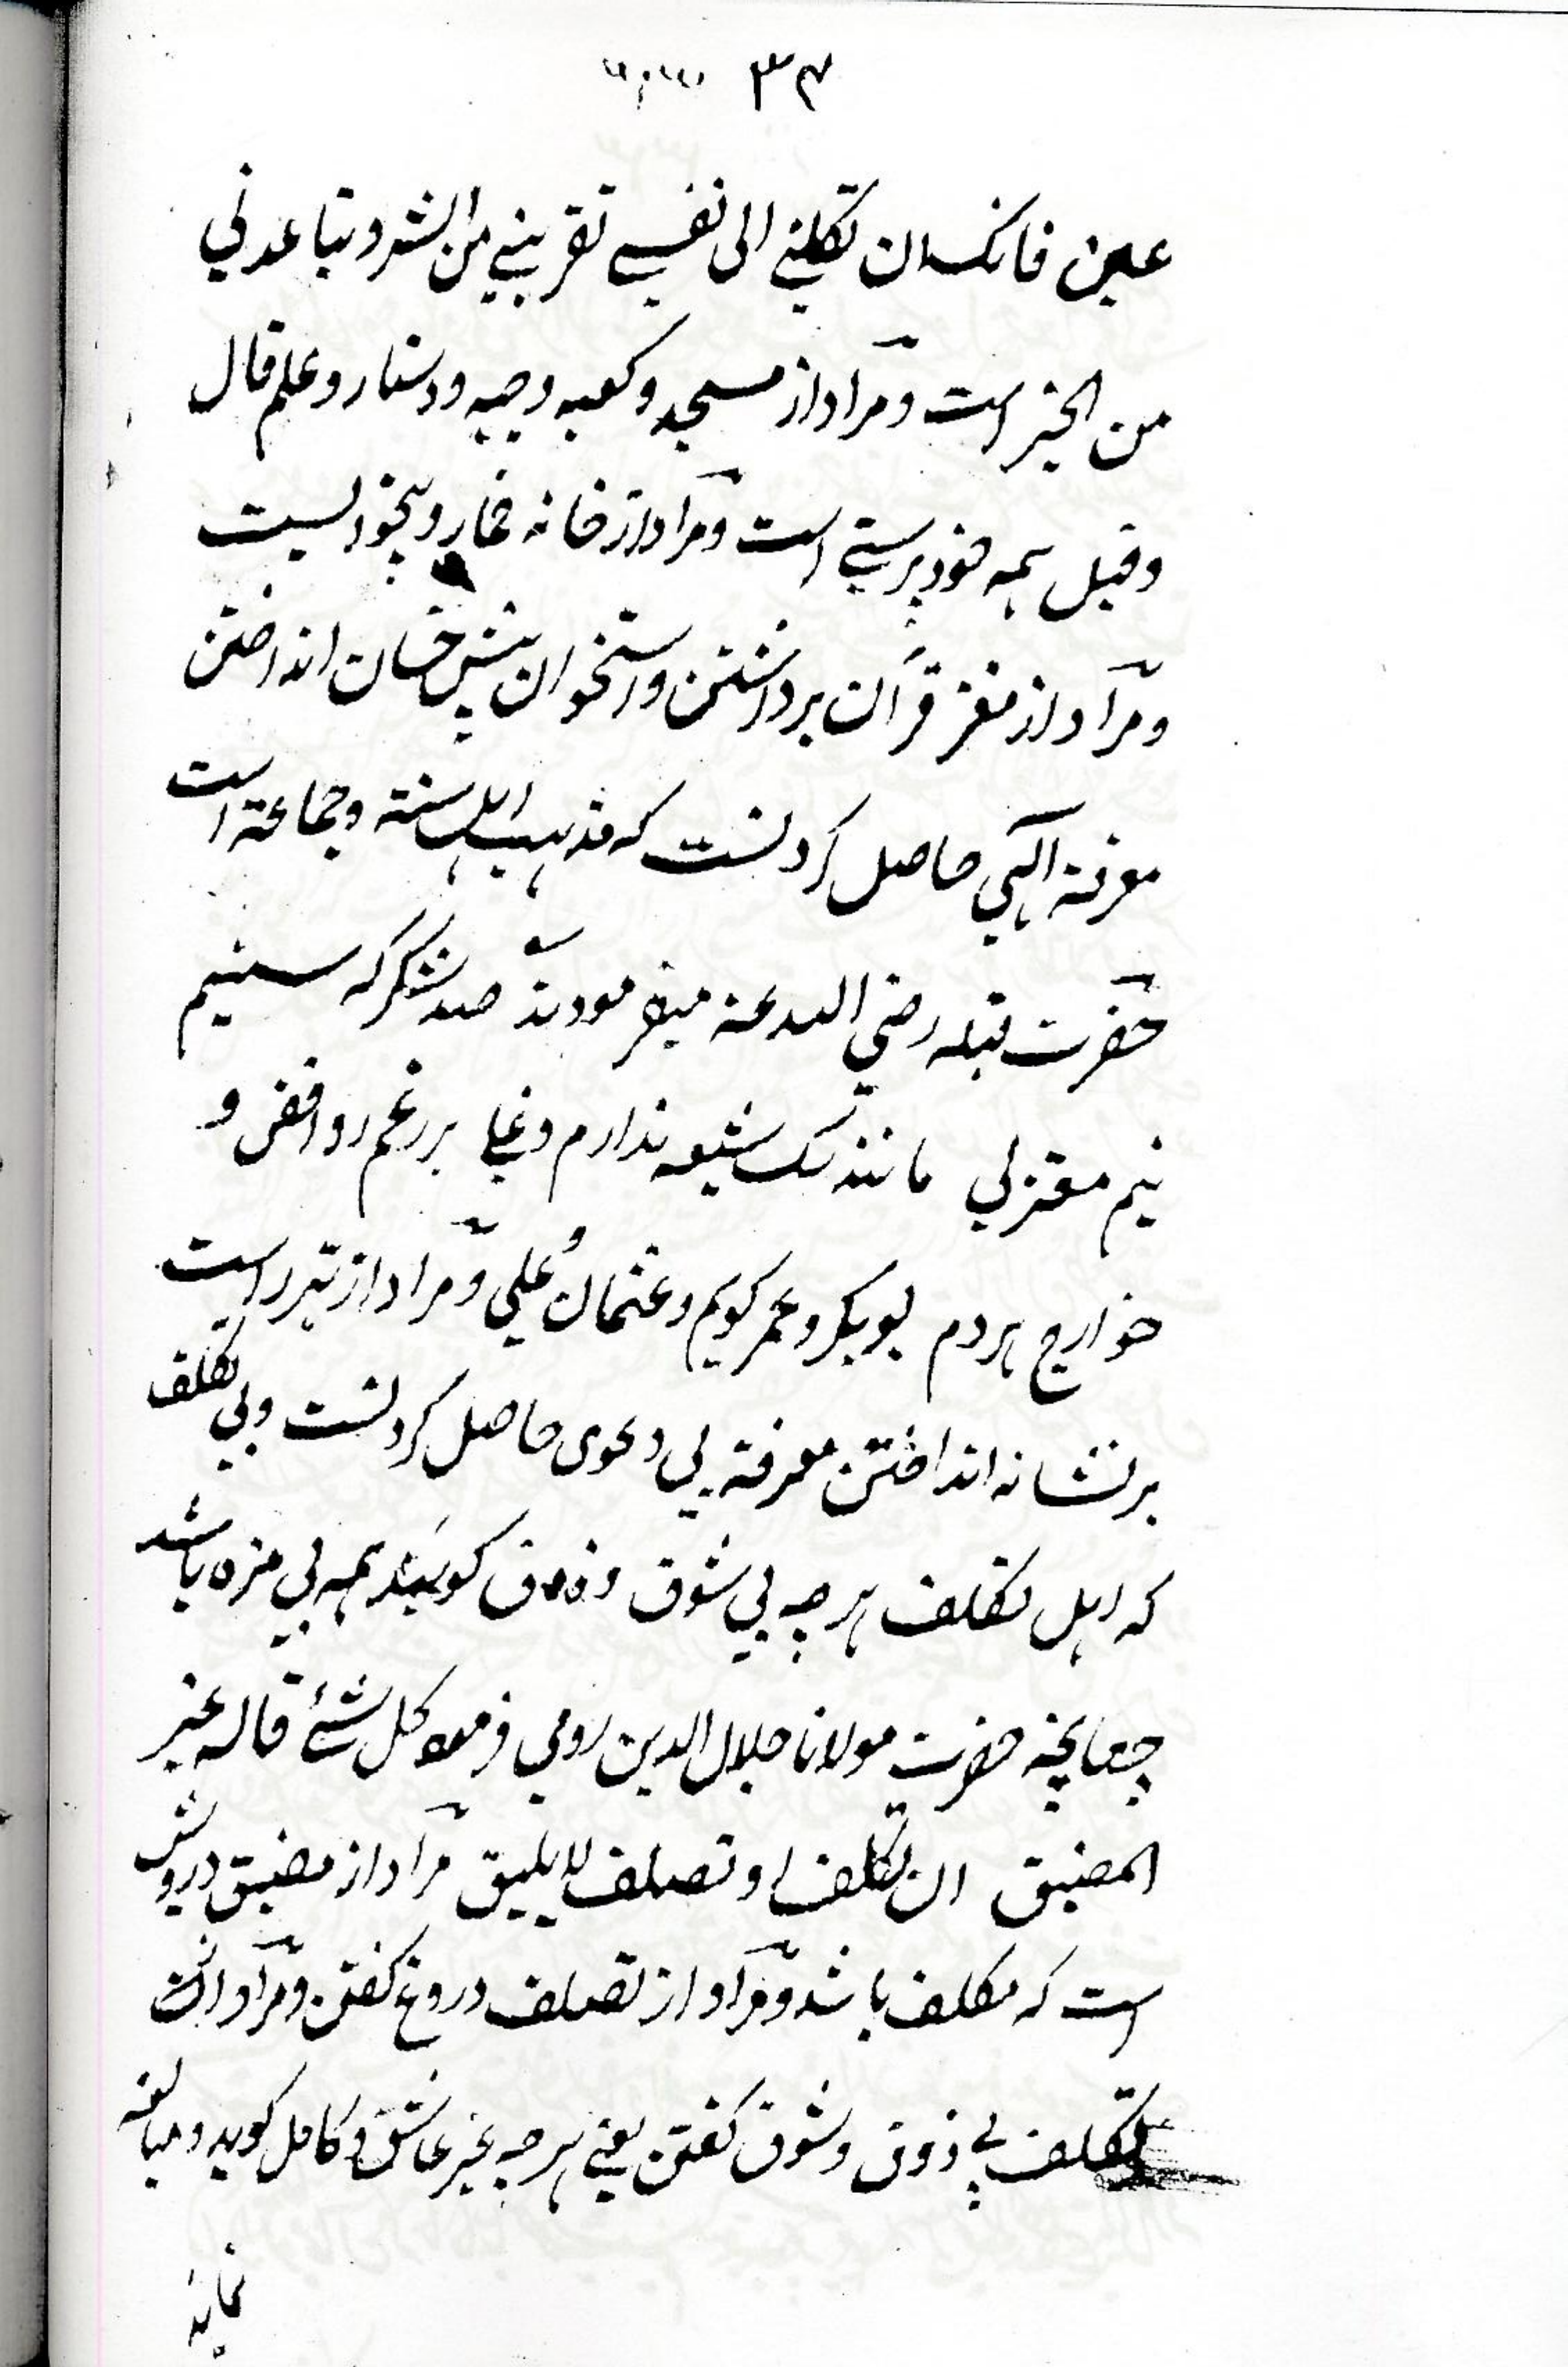 ۳۴
عین فانک ان تکلنی الی نفسی تقربنی من الشر و تباعدنی
من الخیر است و مراد از مسجد و کعبه و جبه و دستار و علم قال
و قیل همه خود پرستی است و مراد از خانه خمار و بیخودیست
و مراد از مغز قرآن برداشتن و استخوان پیش خسان انداختن
معرفة الهی حاصل کردنست که مذهب اهل سنة و جماعة است
حضرت قبله رضی الله عنه میفرمودند صد شکر که سنیم
نیم معتزلی مانند سگ شیعه ندارم دغلی بر رغم روافض و
خوارج هر دم بوبکر و عمر گویم و عثمان و علی و مراد از تیر راست
بر نشانه انداختن معرفة بی دعوی حاصل کردنست و بی تکلف
که اهل تکلف هر چه بی شوق و ذوق گویند همه بی مزه باشد
چنانچه حضرت مولانا جلال الدین رومی فرمود کل شئ قاله غیر
المضیق ان تکلف او تصلف لا یلیق مراد از مضیق درویش
است که مکلف باشد و مراد از تصلف دروغ گفتن و مراد از
تکلف بی ذوق و شوق گفتن یعنی هر چه غیر عاشق و کامل گوید و مبالغه
نماید